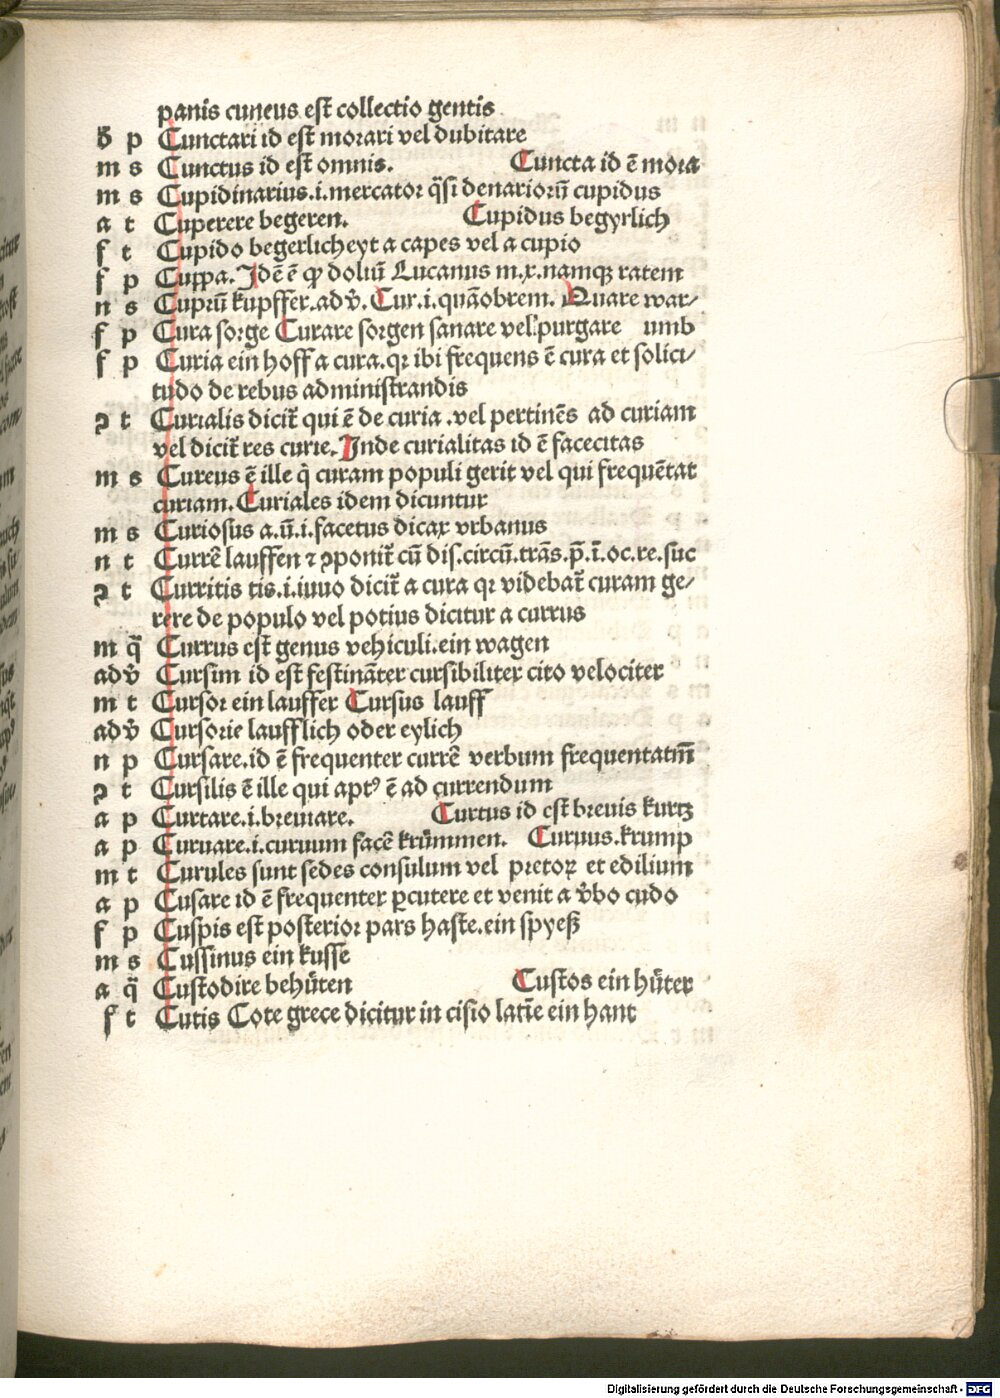 panis cuneus est collectio gentis
d p Cunctari id est morari vel dubitare
m s Cunctus id est omnis. Cuncta id ē mora
m s Cupidinarius.i.mercator q̄si denarioruī cupidus
a t Cuperere begeren. Cupidus begyrlich
f t Cupido begerlicheyt a capes vel a cupio
f p Cuppa. Idē ē qꝫ doliū Lucanus m.x.namqꝫ ratem
n s Cuprū kupffer.adv̄. Cur.i.quāobrem. Quare war-
f p Cura sorge Curare sorgen sanare vel purgare umb
f p Curia ein hoff a cura.qꝛ ibi frequens ē cura et solici-
tudo de rebus administrandis
ꝯ t Curialis dicit̄ qui ē de curia .vel pertinēs ad curiam
vel dicit̄ res curie. Inde curialitas id ē facecitas
m s Cureus ē ille q̇ curam populi gerit vel qui frequētat
curiam. Curiales idem dicuntur
m s Curiosus a.ū.i.facetus dicax vrbanus
n t Currē lauffen ⁊ ꝯponit̄ cū dis.circū.trās.p̄.ī.oc.re.suc
ꝯ t Curritis tis.i.iuuo dicit̄ a cura qꝛ videbat̄ curam ge-
rere de populo vel potius dicitur a currus
m q̄ Currus est genus vehiculi.ein wagen
adv̄ Cursim id est festināter cursibiliter cito velociter
m t Cursor ein lauffer Cursus lauff
adv̄ Cursorie laufflich oder eylich
n p Cursare.id ē frequenter currē verbum frequentatm̄
ꝯ t Cursilis ē ille qui aptꝰ ē ad currendum
a p Curtare.i.breuiare. Curtus id est breuis kurtz
a p Curuare.i.curuum facē krümmen. Curuus.krump
m t Curules sunt sedes consulum vel pretoꝝ et edilium
a p Cusare id ē frequenter ꝑcutere et venit a v̄bo cudo
f p Cuspis est posterior pars haste.ein spyeß
m s Cussinus ein kusse
a q̄ Custodire behüten Custos ein hüter
f t Cutis Cote grece dicitur in cisio latīe ein hant
Digitalisierung gefördert durch die Deutsche Forschungsgemeinschaft - DFG